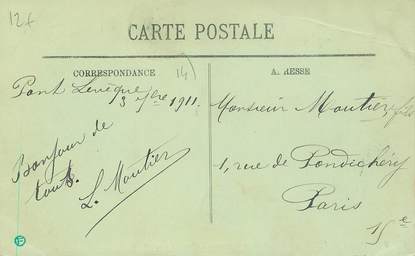 12f
CARTE POSTALE
CORRESPONDANCE
14)
ADRESSE
Pont Levêque
3 7bre 1911.
Bonjour de
tous.
L. Moutier
Monsieur Moutier, fils
1, rue de Pondichéry
Paris
15e